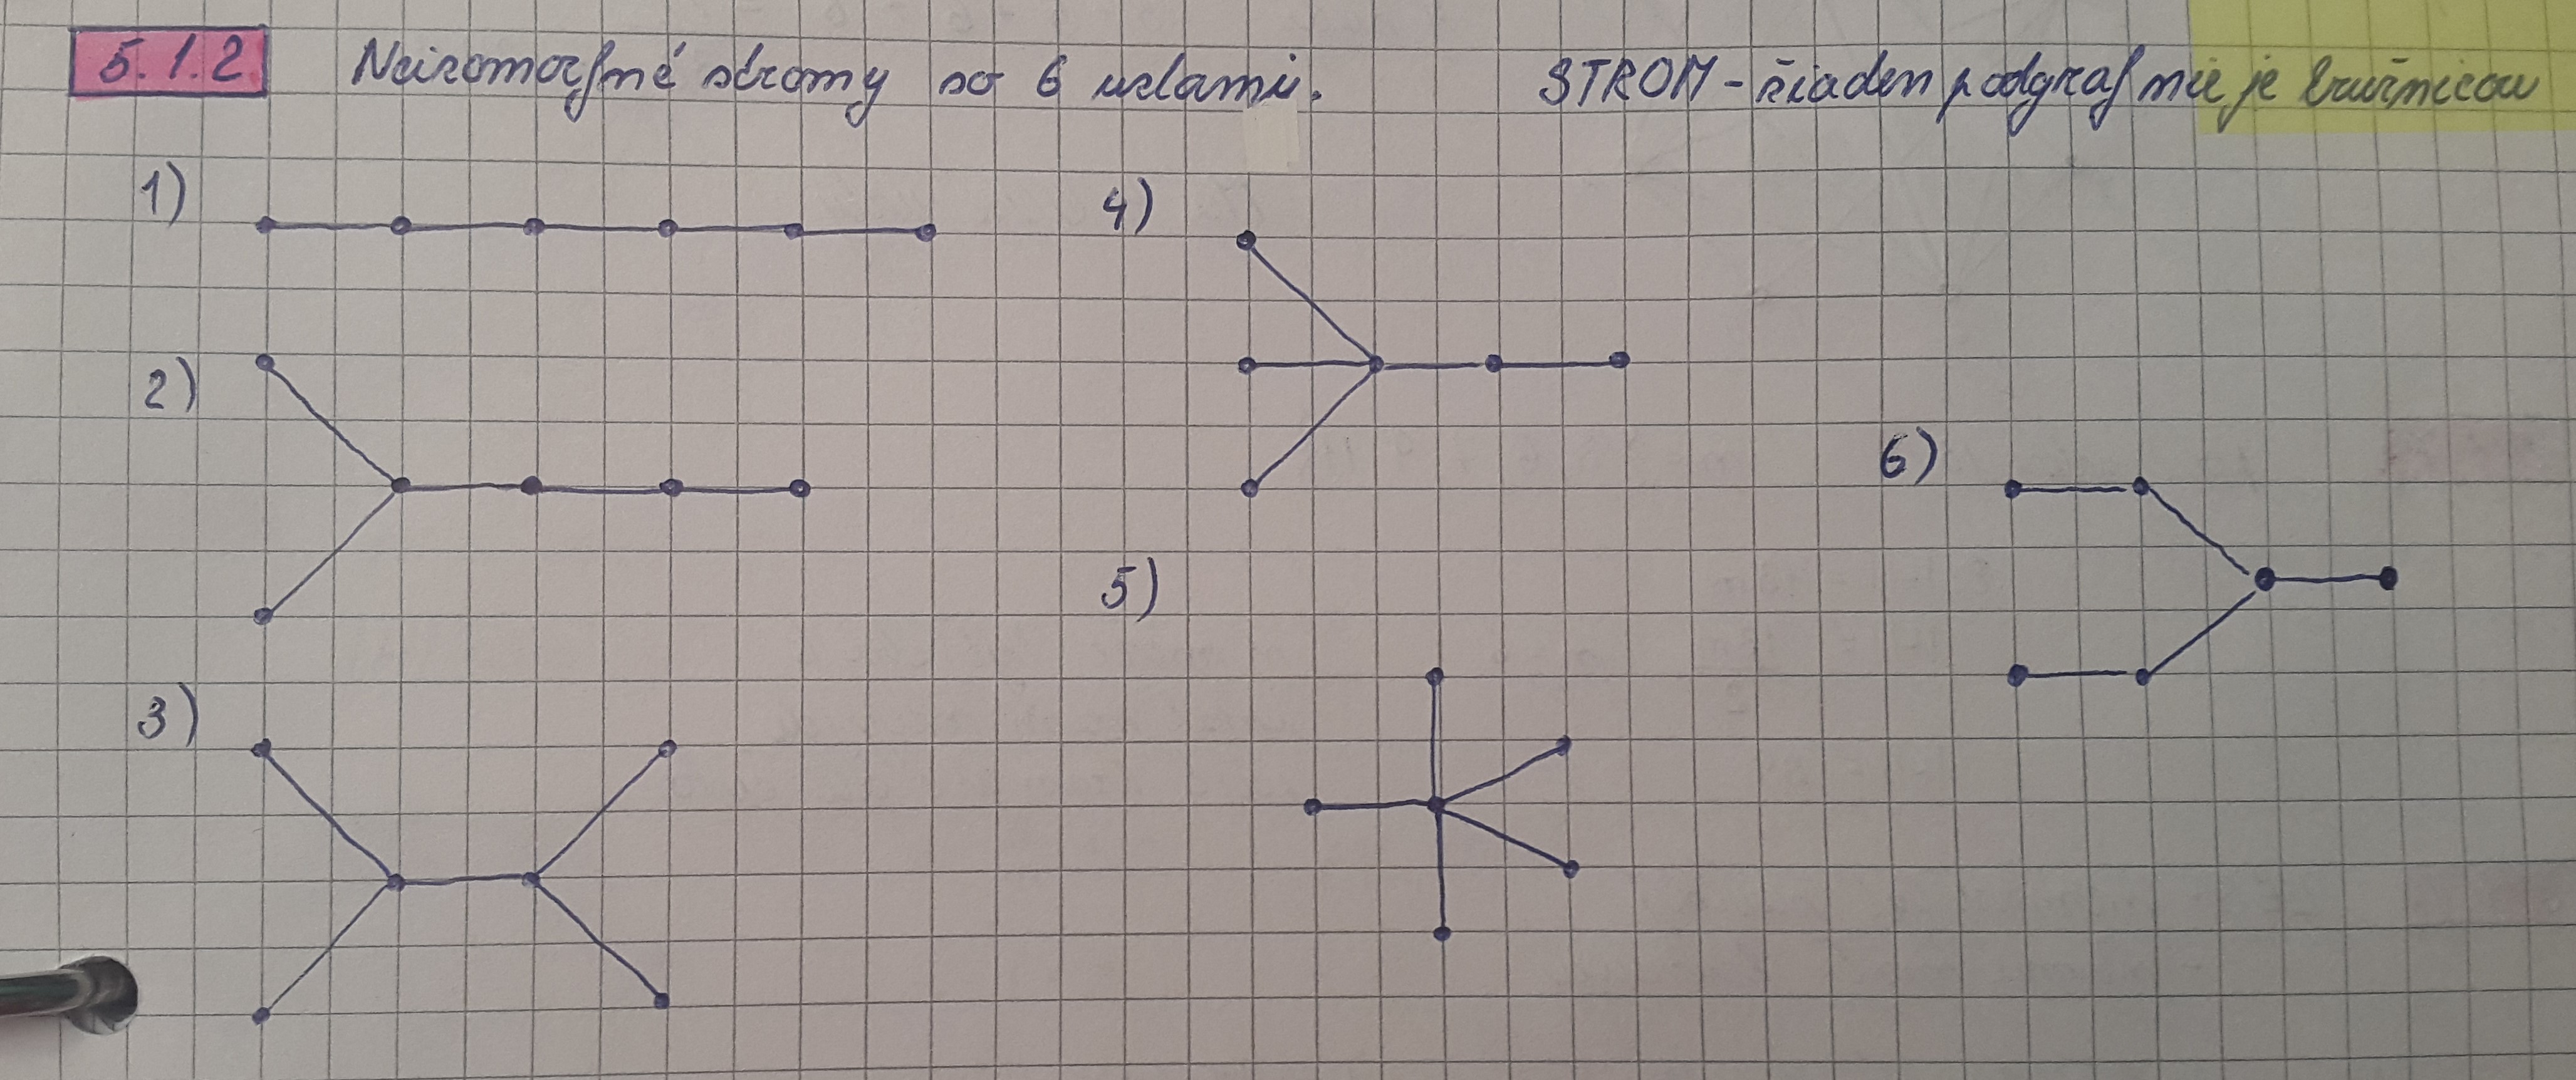 5.1.2 Neizomorfné stromy so 6 uzlami. STROM - žiaden podgraf nie je kružnicou
1)
4)
2)
6)
5)
3)